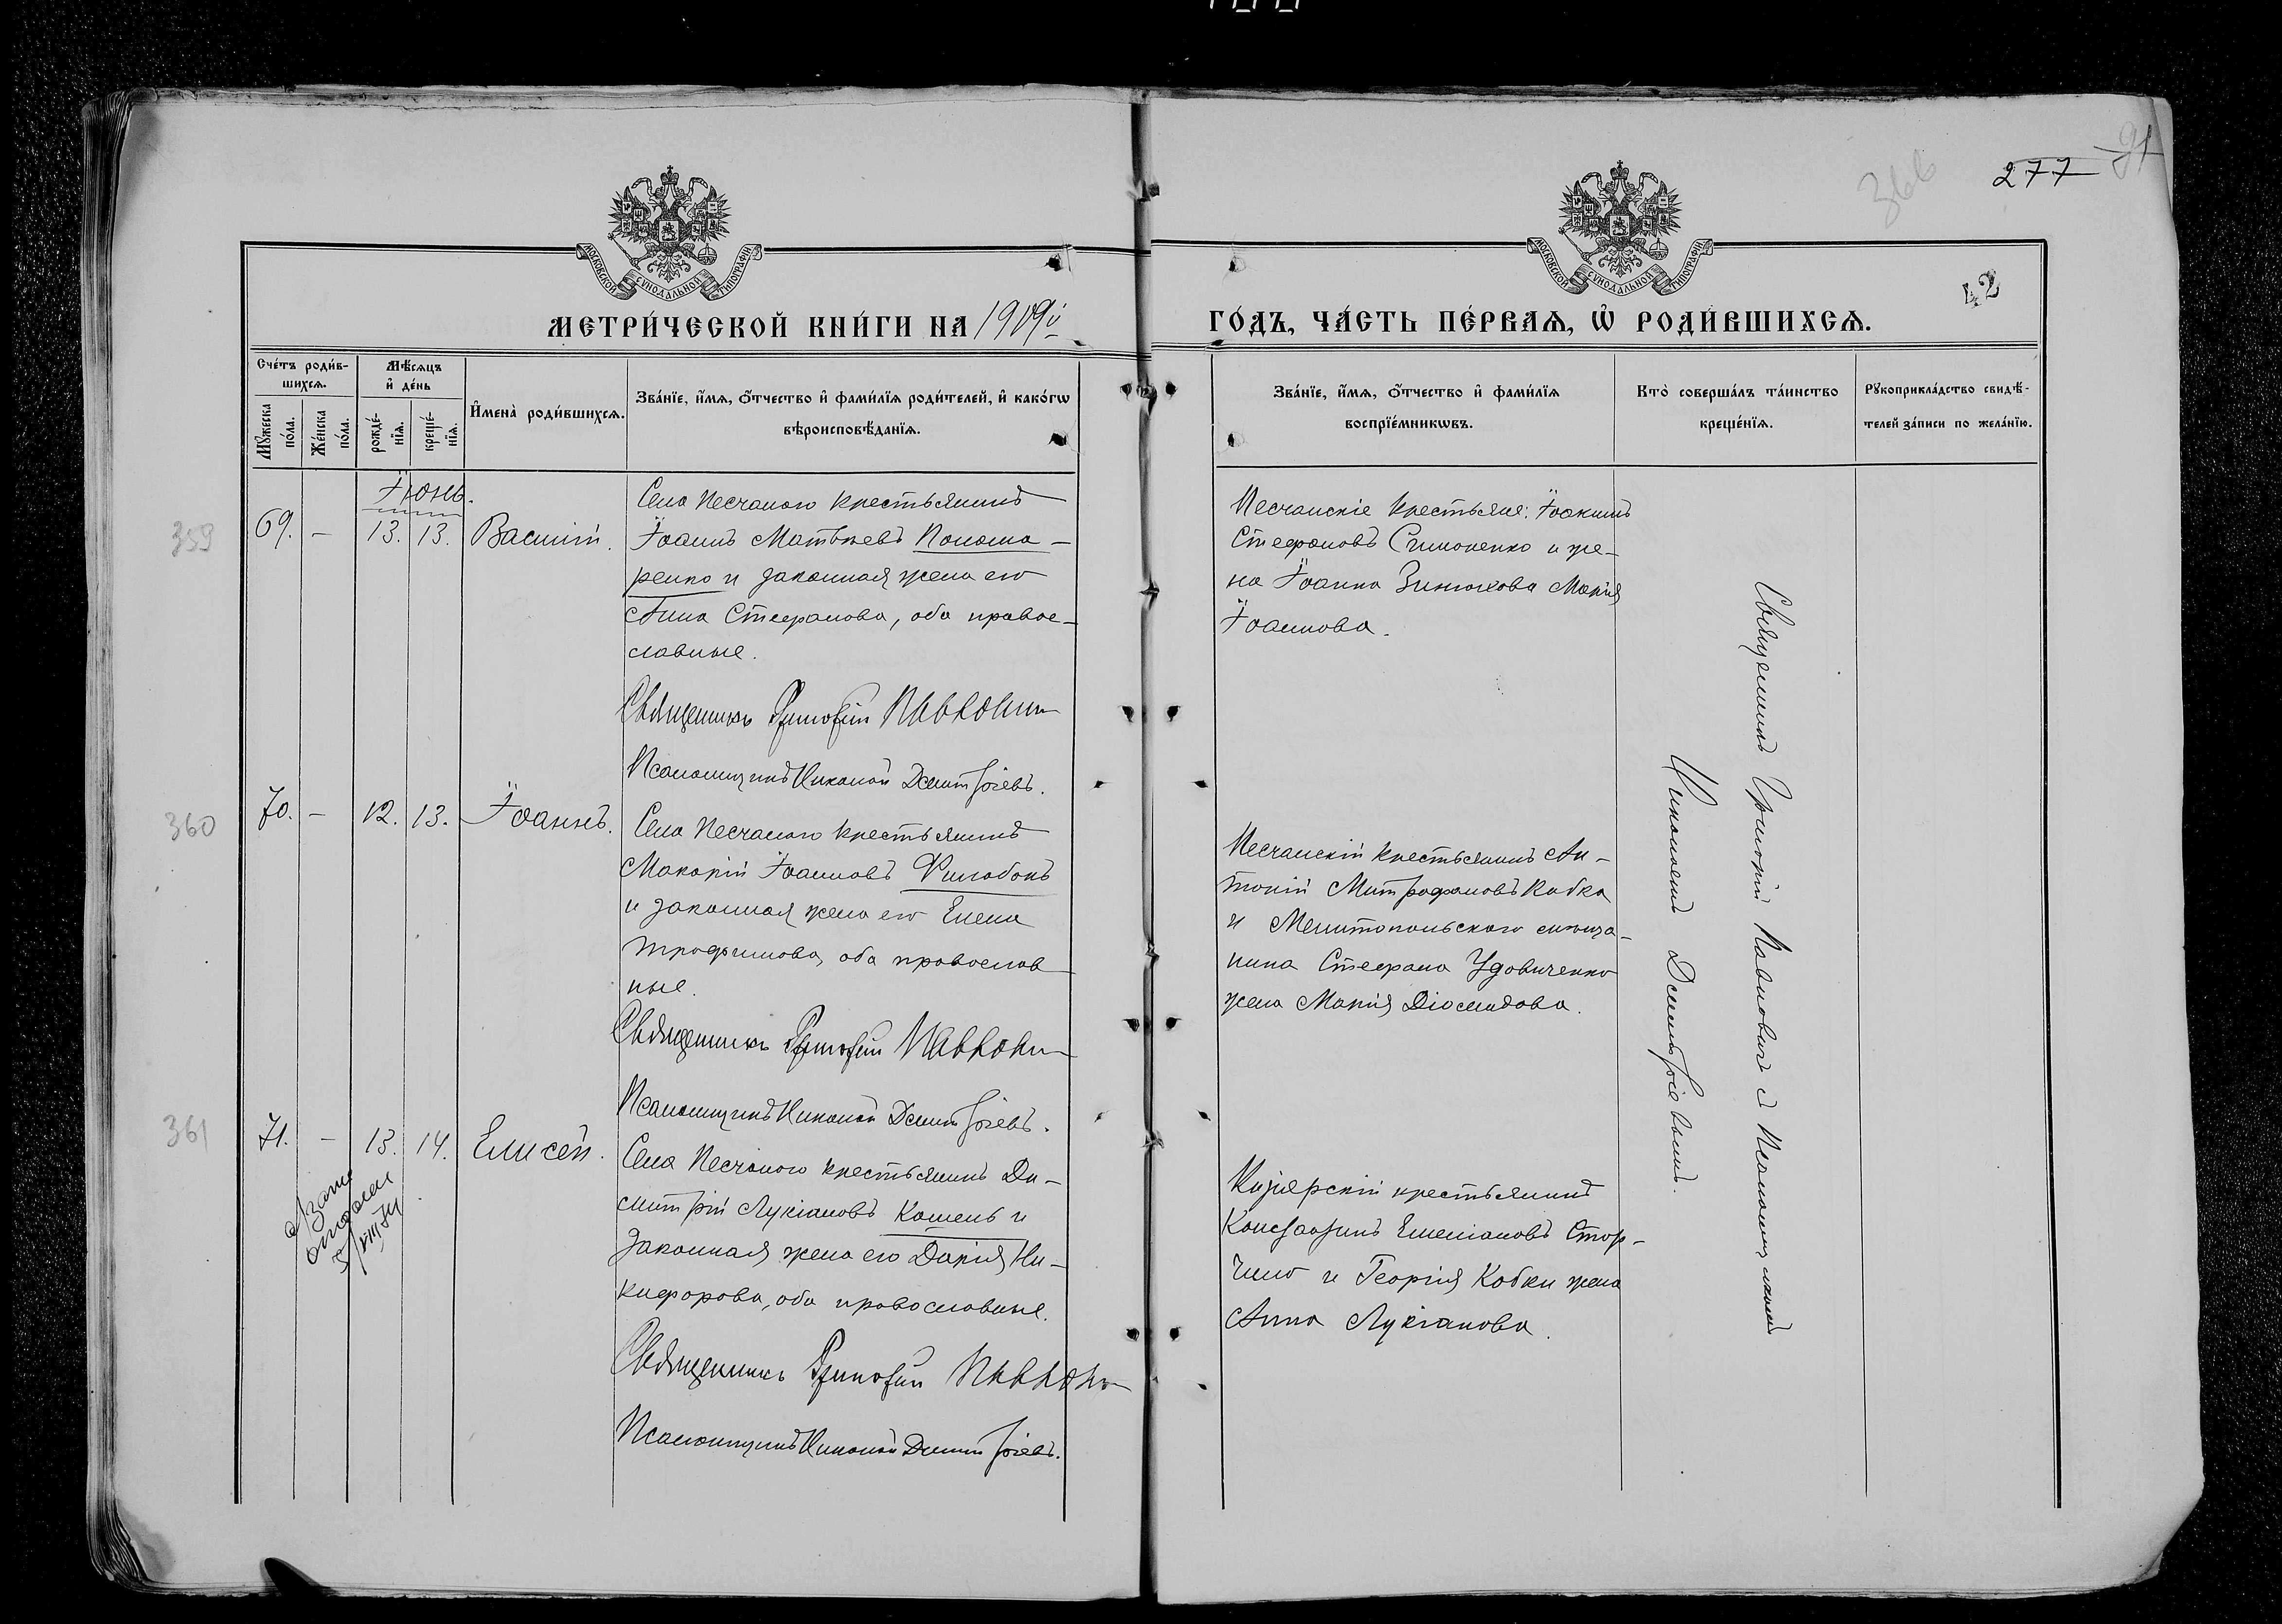 366
277
91
42
МОСКОВСКОЙ СѴНОДАЛЬНОЙ ТИПОГРАФІИ
МОСКОВСКОЙ СѴНОДАЛЬНОЙ ТИПОГРАФІИ
МЕТРИ́ЧЕСКОЙ КНИ́ГИ НА 1909й
ГО́ДЪ, ЧА́СТЬ ПЕ́РВАѦ, Ѡ҆ РОДИ́ВШИХСѦ.
Сче́тъ роди́в-
шихсѧ.
Мꙋ́жеска по́ла.
Же́нска по́ла.
Мѣ́сѧцъ
и҆ де́нь
рожде́-
нїѧ.
креще́-
нїѧ.
И҆мена̀ роди́вшихсѧ.
Зва́нїе, и҆́мѧ, ѻ҆́тчество и҆ фами́лїѧ роди́телей, и҆ како́гѡ
вѣроисповѣ́данїѧ.
Зва́нїе, и҆́мѧ, ѻ҆́тчество и҆ фами́лїѧ
воспрїе́мникѡвъ.
Кто̀ соверша́лъ та́инство
креще́нїѧ.
Рꙋкоприкла́дство свидѣ́-
телей за́писи по жела́нїю.
Іюнь.
359
69. – 13. 13. Василій.
Села Песчаного крестьянинъ
Іоаннъ Матвѣевъ Понома-
ренко и законная жена его
Анна Стефанова, оба право-
славные.
Священникъ Григорій Павлович
Псаломщикъ Николай Димитріевъ.
Песчанскіе крестьяне: Іоакимъ
Стефановъ Симоненко и же-
на Іоанна Зинюкова Марія
Іоаннова.
360
70. – 12. 13. Іоаннъ.
Села Песчаного крестьянинъ
Макарій Іоанновъ Филобокъ
и законная жена его Елена
Трофимова, оба православ-
ные.
Священникъ Григорій Павлович
Псаломщикъ Николай Димитріевъ.
Песчанскій крестьянинъ Ан-
тоній Митрофановъ Кобка
и Мелитопольского мѣща-
нина Стефана Удовиченко
жена Марія Діомидова.
361
71. – 13. 14. Елисей.
Села Песчаного крестьянинъ Ди-
митрій Лукіановъ Кошель и
законная жена его Дарія Ни-
кифорова, оба православные.
Священникъ Григорій Павлович
Псаломщикъ Николай Димитріевъ.
Кизіярскій крестьянинъ
Константинъ Емеліановъ Стор-
чило и Георгія Кобки жена
Анна Лукіанова.
Священникъ Григорій Павловичъ съ Псаломщикомъ
Николаемъ Димитріевымъ.